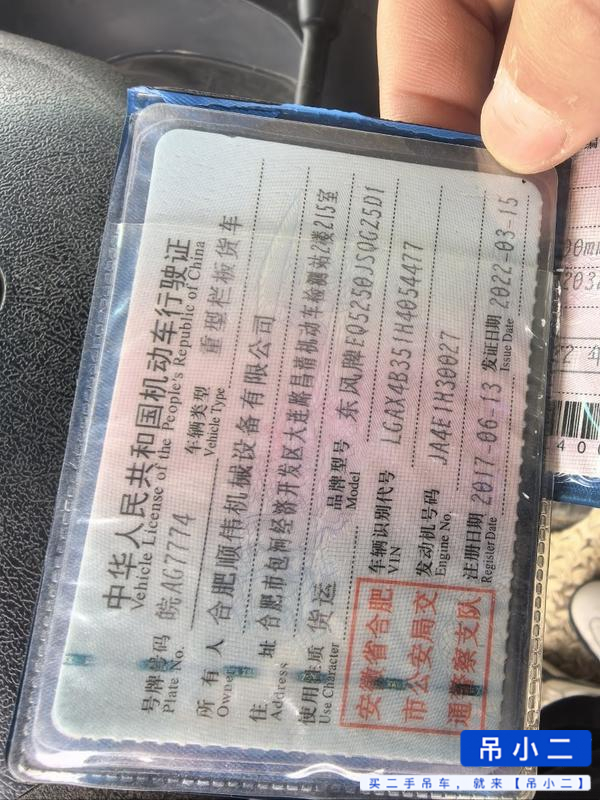 中华人民共和国机动车行驶证
Vehicle License of the People's Republic of China
号牌号码 皖AG7774 车辆类型 重型栏板货车
Plate No. Vehicle Type
所有人 合肥顺伟机械设备有限公司
Owner
住址 合肥市包河经济开发区大连路昌清机动车检测站2楼215室
Address
使用性质 货运 品牌型号 东风牌EQ5250JSQG25D1
Use Character Model
安徽省合肥
市公安局交
通警察支队
车辆识别代号 LGAX4B351H4054477
VIN
发动机号码 JA4E1H30027
Engine No.
注册日期 2017-06-13 发证日期 2022-03-15
Register Date Issue Date
吊小二
买二手吊车,就来【吊小二】